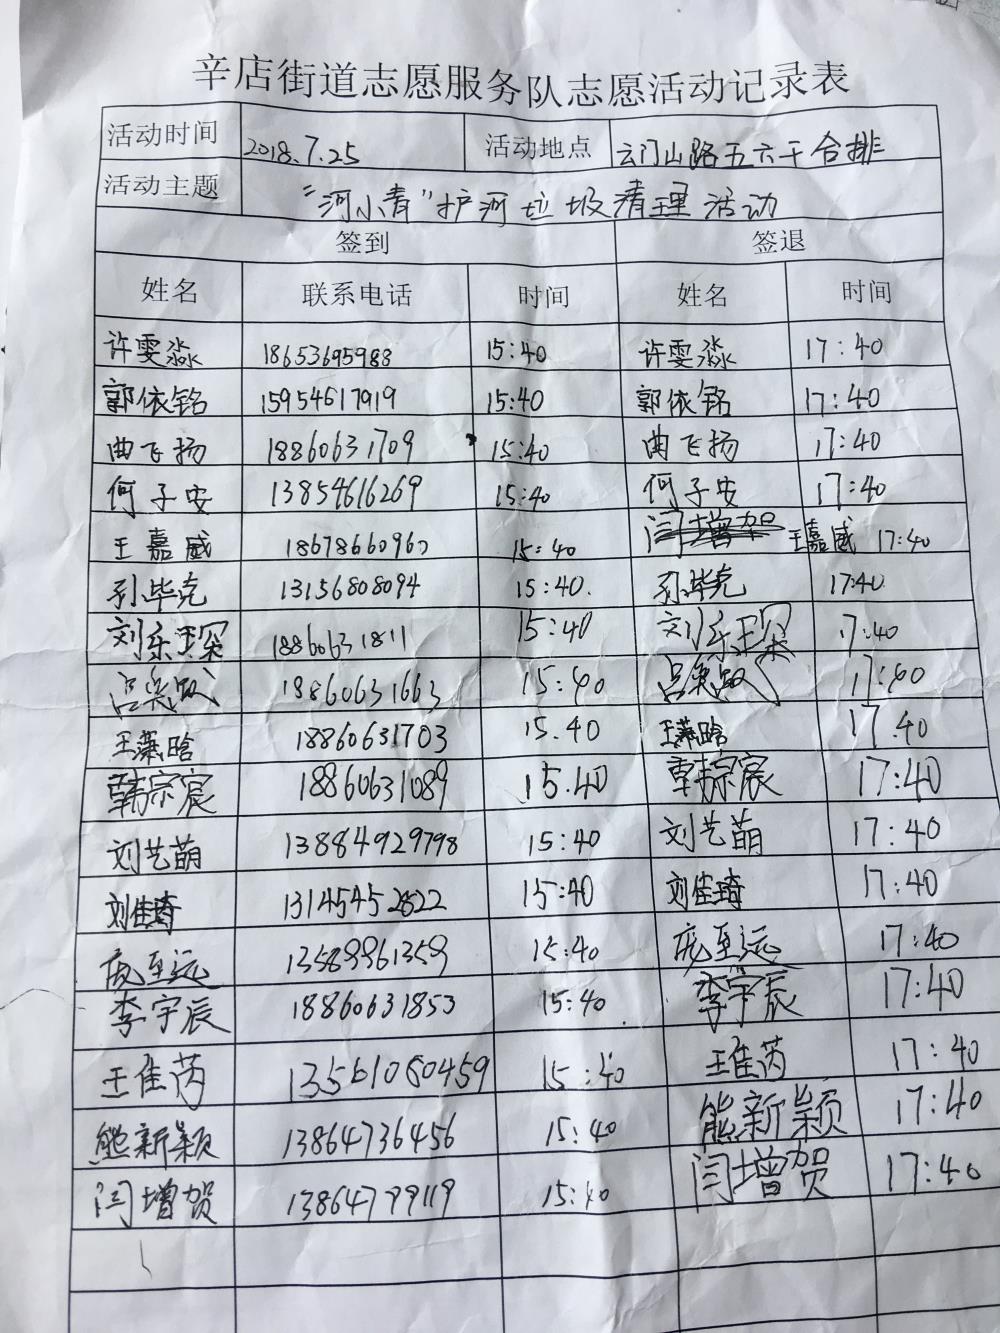 辛店街道志愿服务队志愿活动记录表
活动时间 2018.7.25 活动地点 云门山路五六干合排
活动主题 "河小青"护河垃圾清理活动
签到 签退
姓名 联系电话 时间 姓名 时间
许雯淼 18653695988 15:40 许雯淼 17:40
郭依铭 15954617919 15:40 郭依铭 17:40
曲飞扬 18860631709 15:40 曲飞扬 17:40
何子安 13854616269 15:40 何子安 17:40
王嘉威 18678660960 15:40 闫增贺 王嘉威 17:40
孙毕克 13156808094 15:40. 孙毕克 17:40
刘东琛 18860631811 15:40 刘东琛 17:40
吕奕 18860631663 15:40 吕奕 17:40
王潇晗 18860631703 15.40 王潇晗 17.40
韩宗宸 18860631089 15.40 韩宗宸 17:40
刘艺萌 13884929798 15:40 刘艺萌 17:40
刘佳琦 13145452822 15:40 刘佳琦 17:40
庞至远 13589861359 15:40 庞至远 17:40
李宇辰 18860631853 15:40 李宇辰 17:40
王佳芮 13561080459 15:40 王佳芮 17:40
熊新颖 13864736456 15:40 熊新颖 17:40
闫增贺 13864799119 15:40 闫增贺 17:40